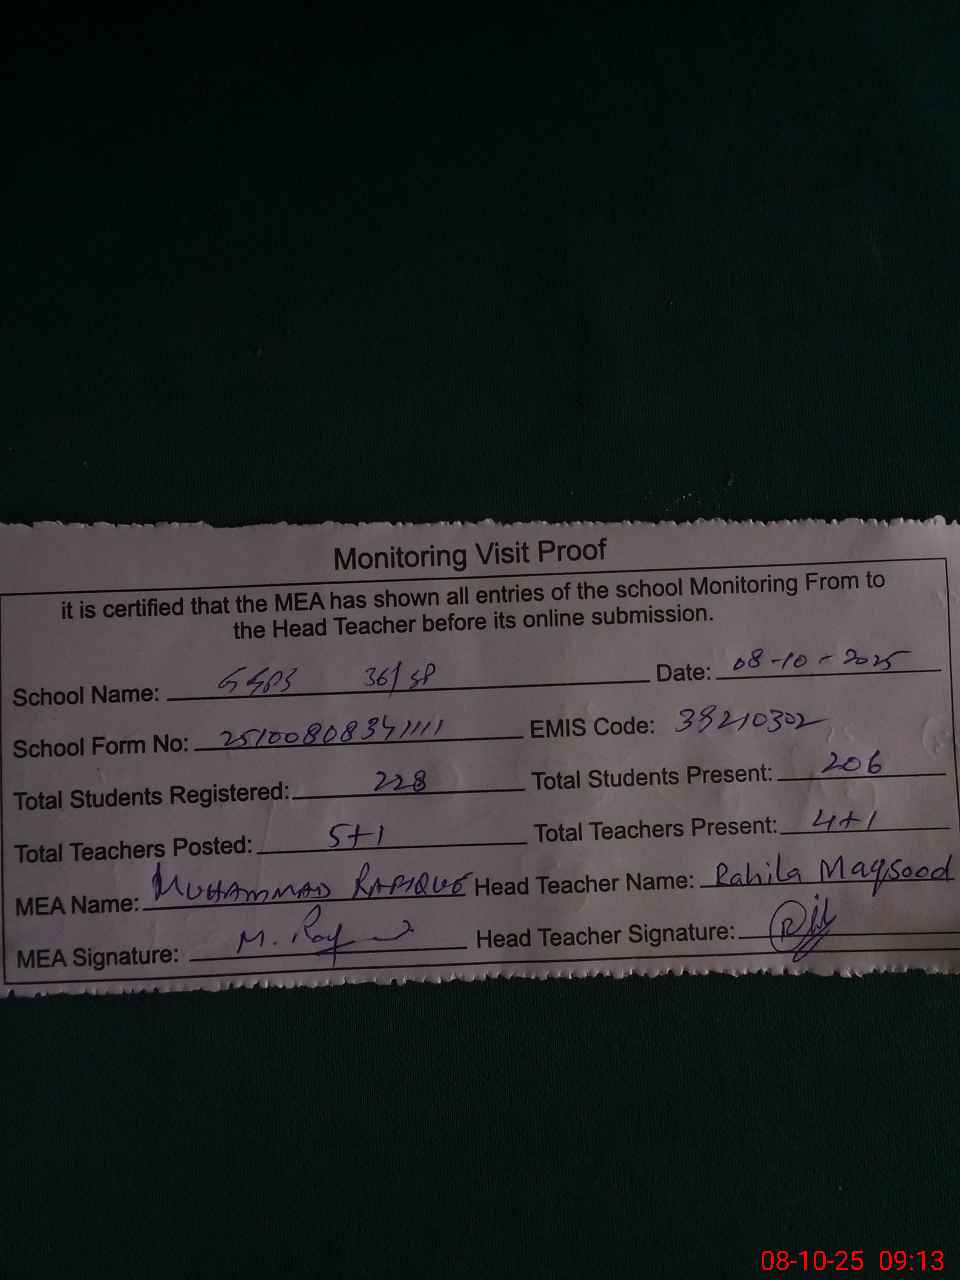 Monitoring Visit Proof
it is certified that the MEA has shown all entries of the school Monitoring From to
the Head Teacher before its online submission.
School Name: GGPS 36/SP Date: 08-10-2025
School Form No: 25100808341111 EMIS Code: 39210302
Total Students Registered: 228 Total Students Present: 206
Total Teachers Posted: 5+1 Total Teachers Present: 4+1
MEA Name: MUHAMMAD RAFIQUE Head Teacher Name: Rahila Maqsood
MEA Signature: M. Raf Head Teacher Signature:
08-10-25 09:13